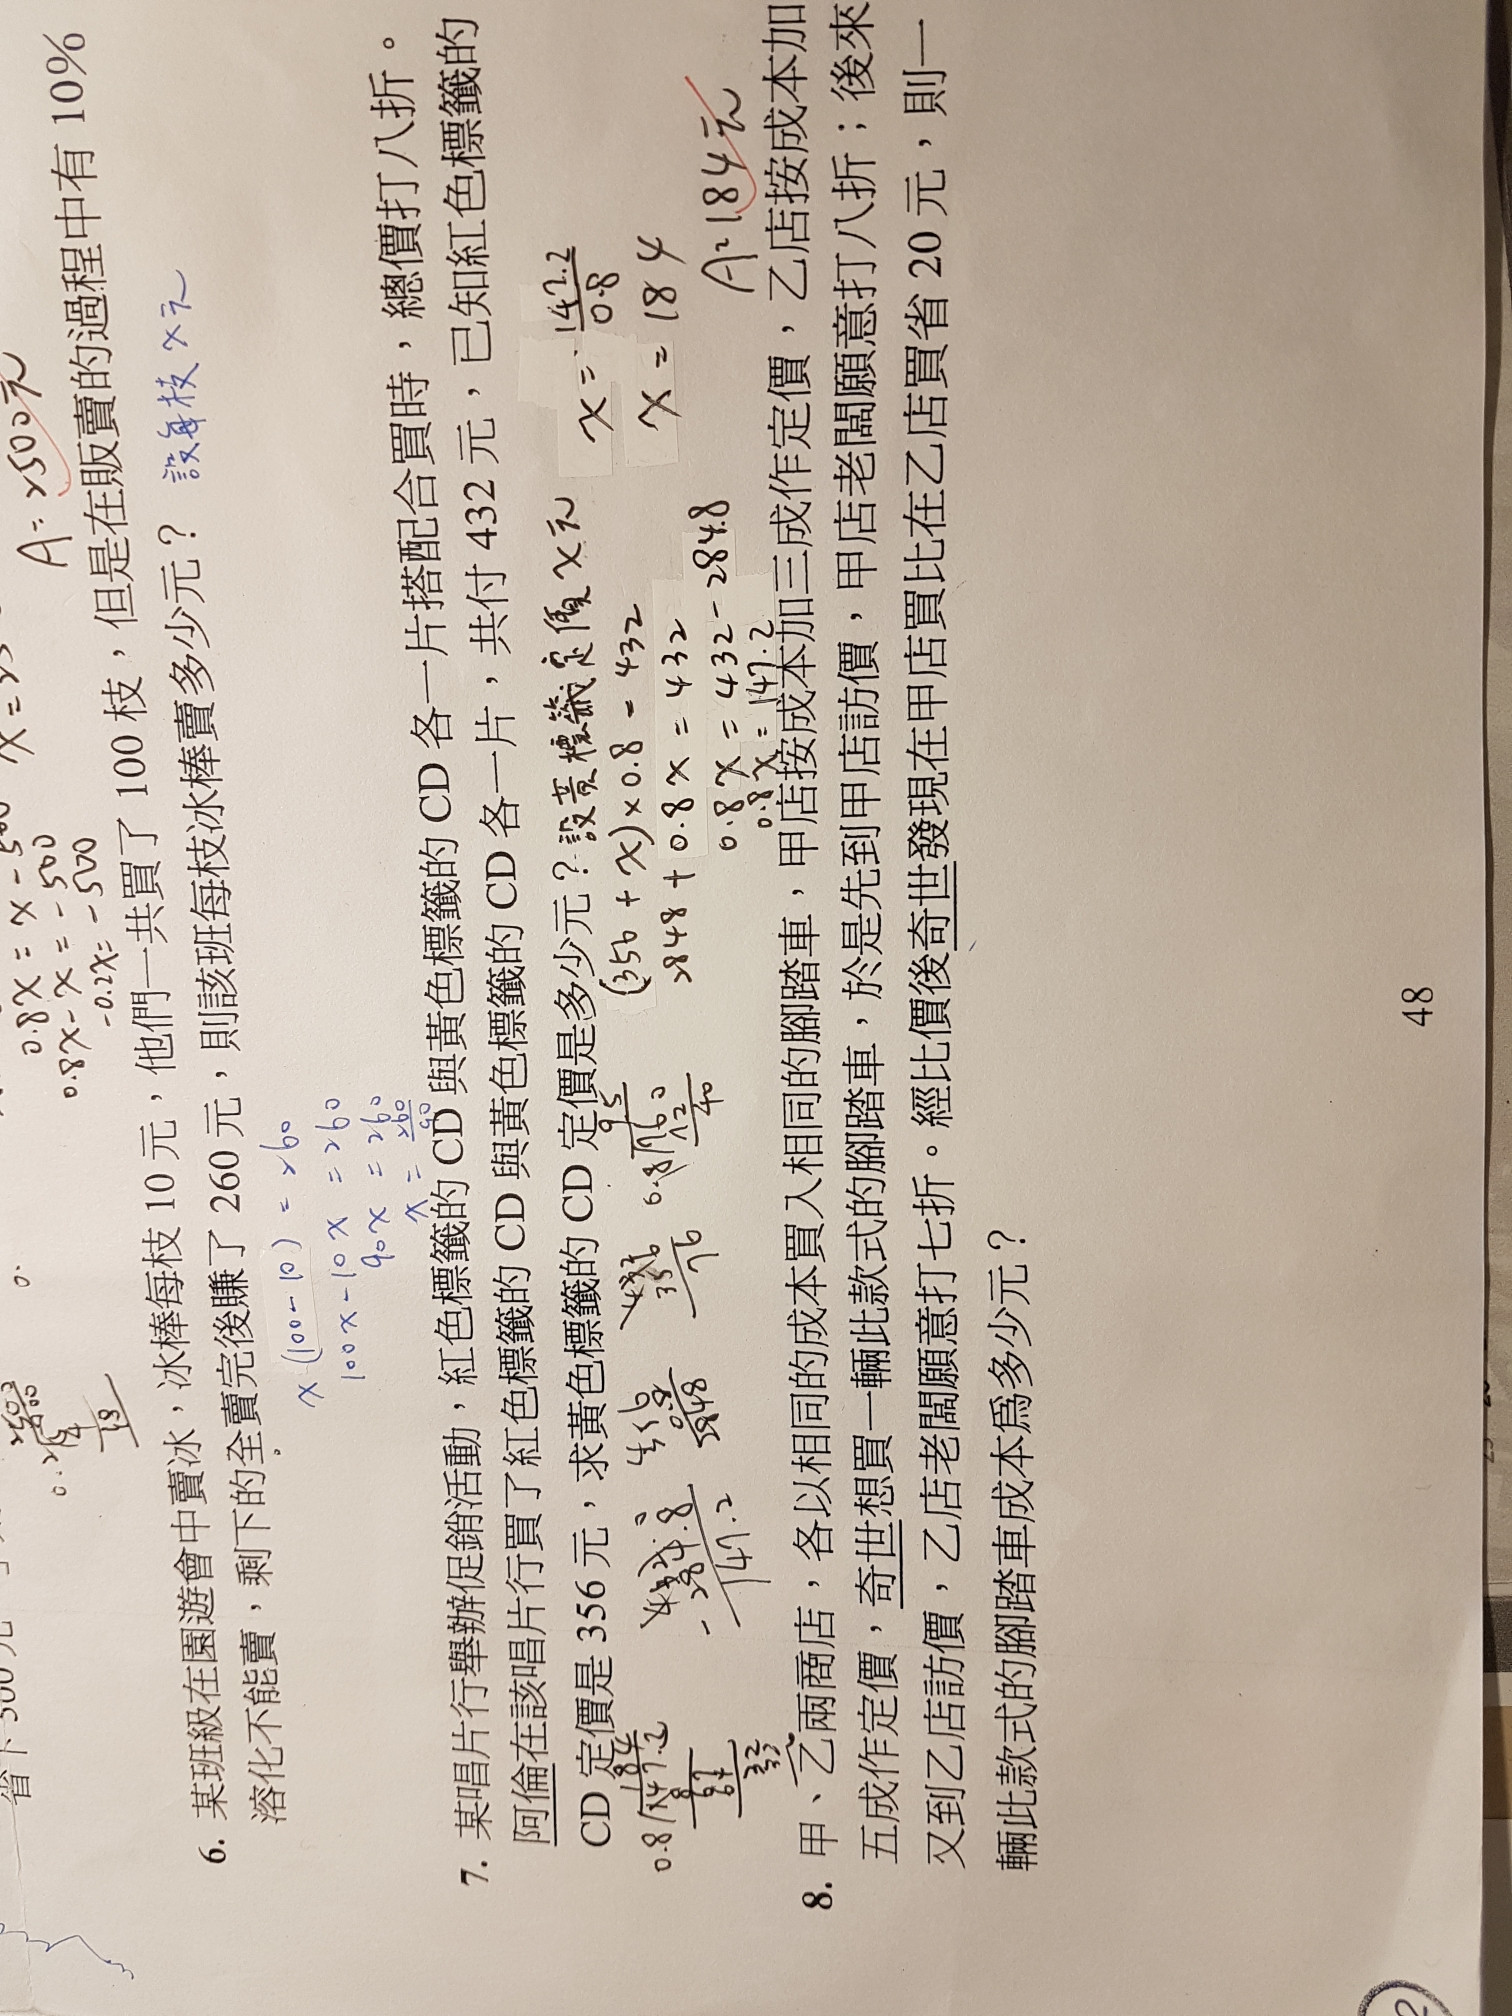 A=2500元
0.8x = x - 500
0.8x - x = -500
-0.2x = -500
6. 某班級在園遊會中賣冰，冰棒每枝 10 元，他們一共買了 100 枝，但是在販賣的過程中有 10%
溶化不能賣，剩下的全賣完後賺了 260 元，則該班每枝冰棒賣多少元？ 設每枝x元
x(100-10) = 260
100x-10x = 260
90x = 260
x = 260/90
7. 某唱片行舉辦促銷活動，紅色標籤的 CD 與黃色標籤的 CD 各一片搭配合買時，總價打八折。
阿倫在該唱片行買了紅色標籤的 CD 與黃色標籤的 CD 各一片，共付 432 元，已知紅色標籤的
CD 定價是 356 元，求黃色標籤的 CD 定價是多少元？設黃標籤定價x元
(356 + x) × 0.8 = 432
2848 + 0.8x = 432
0.8x = 432 - 284.8
0.8x = 147.2
x = 147.2/0.8
x = 184
A=184元
8. 甲、乙兩商店，各以相同的成本買入相同的腳踏車，甲店按成本加三成作定價，乙店按成本加
五成作定價，奇世想買一輛此款式的腳踏車，於是先到甲店訪價，甲店老闆願意打八折；後來
又到乙店訪價，乙店老闆願意打七折。經比價後奇世發現在甲店買比在乙店買省 20 元，則一
輛此款式的腳踏車成本爲多少元？
48